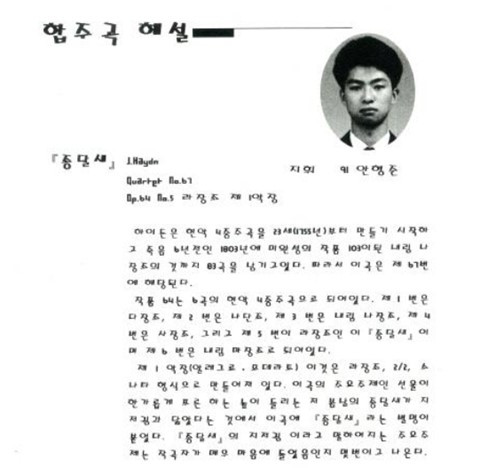 합주곡 해설
지휘 91 안형준
『종달새』 J.Haydn
Quartet No.67
Op.64 No.5 라장조 제 1악장
하이든은 현악 4중주곡을 23세(1755년)부터 만들기 시작하
고 죽음 6년전인 1803년에 미완성의 작품 103이된 내림 나
장조의 것까지 83곡을 남기고있다. 따라서 이곡은 제 67번
에 해당된다.
작품 64는 6곡의 현악 4중주곡으로 되어있다. 제 1 번은
다장조, 제 2 번은 나단조, 제 3 번은 내림 나장조, 제 4
번은 사장조, 그리고 제 5 번이 라장조인 이 『종달새』이
며 제 6 번은 내림 마장조로 되어있다.
제 1 악장(알레그로 · 모데라토) 이것은 라장조, 2/2, 소
나타 형식으로 만들어져 있다. 이곡의 주요주제인 선율이
한가롭게 푸른 하늘 높이 들리는 저 봄날의 종달새가 지
저귐과 닮았다는 것에서 이곡에 『종달새』라는 별명이
붙었다. 『종달새』의 지저귐 이라고 말하여지는 주요주
제는 작곡자가 매우 마음에 들었음인지 몇번이고 나온다.